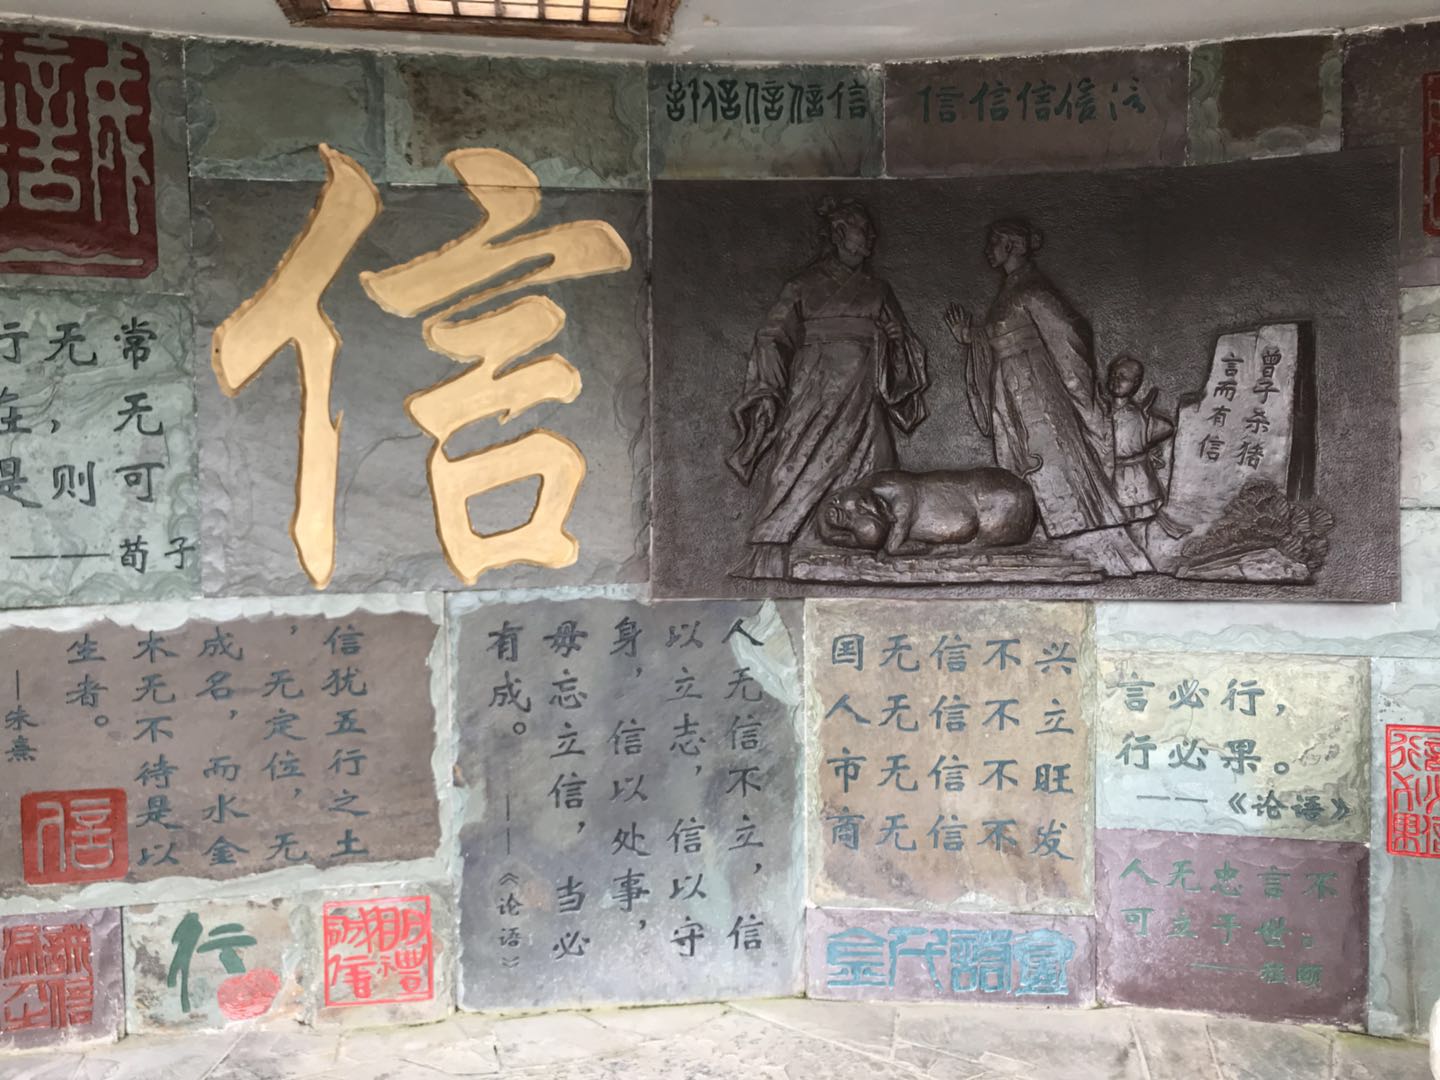 誠
信
信信信信
信信信信
曾子杀猪
言而有信
常无可
无，则
行在是
——荀子
信犹五行之土
，无定位，无
成名，而水金
木无不待是以
生者。
—朱熹
信
人无信不立，信
以立志，信以守
身，信以处事，
毋忘立信，当必
有成。
——《论语》
国无信不兴
人无信不立
市无信不旺
商无信不发
言必行，
行必果。
——《论语》
人无忠言不
可立于世。
行
誠信